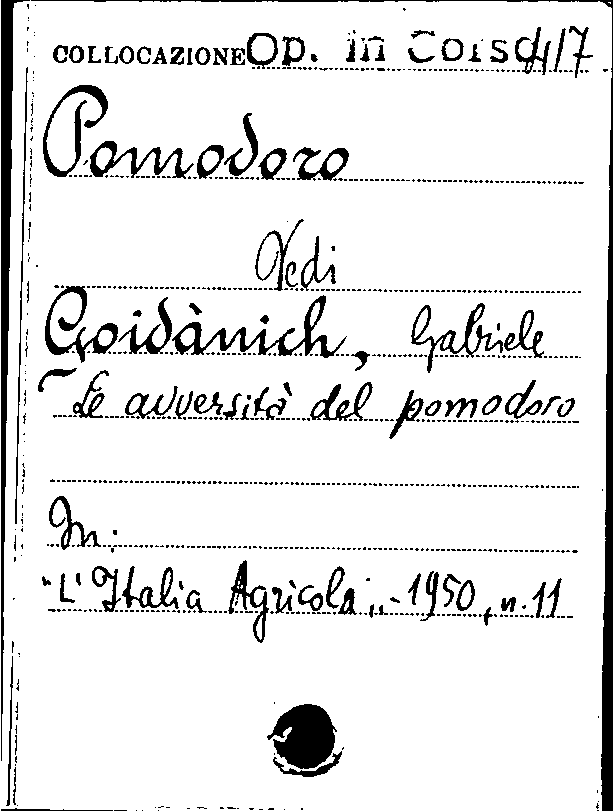 COLLOCAZIONE Op. in Corso 4/7
Pomodoro
Vedi
Goidànich, Gabriele
Le avversità del pomodoro
In:
"L'Italia Agricola„ - 1950, n. 11